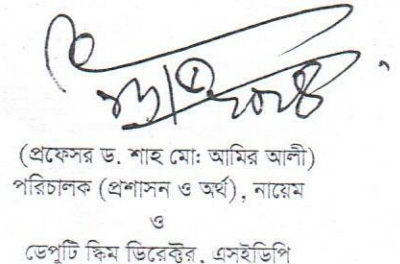 (প্রফেসর ড. শাহ মো: আমির আলী)
পরিচালক (প্রশাসন ও অর্থ), নায়েম
ও
ডেপুটি স্কিম ডিরেক্টর, এসইডিপি